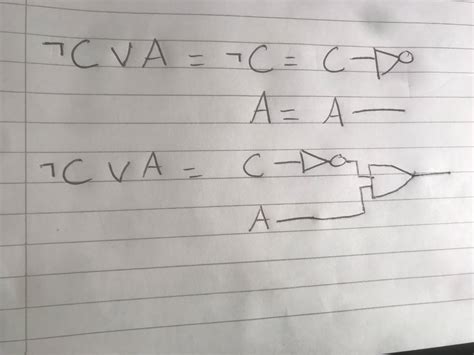 ¬C ∨ A = ¬C = C
A = A
¬C ∨ A = C
A